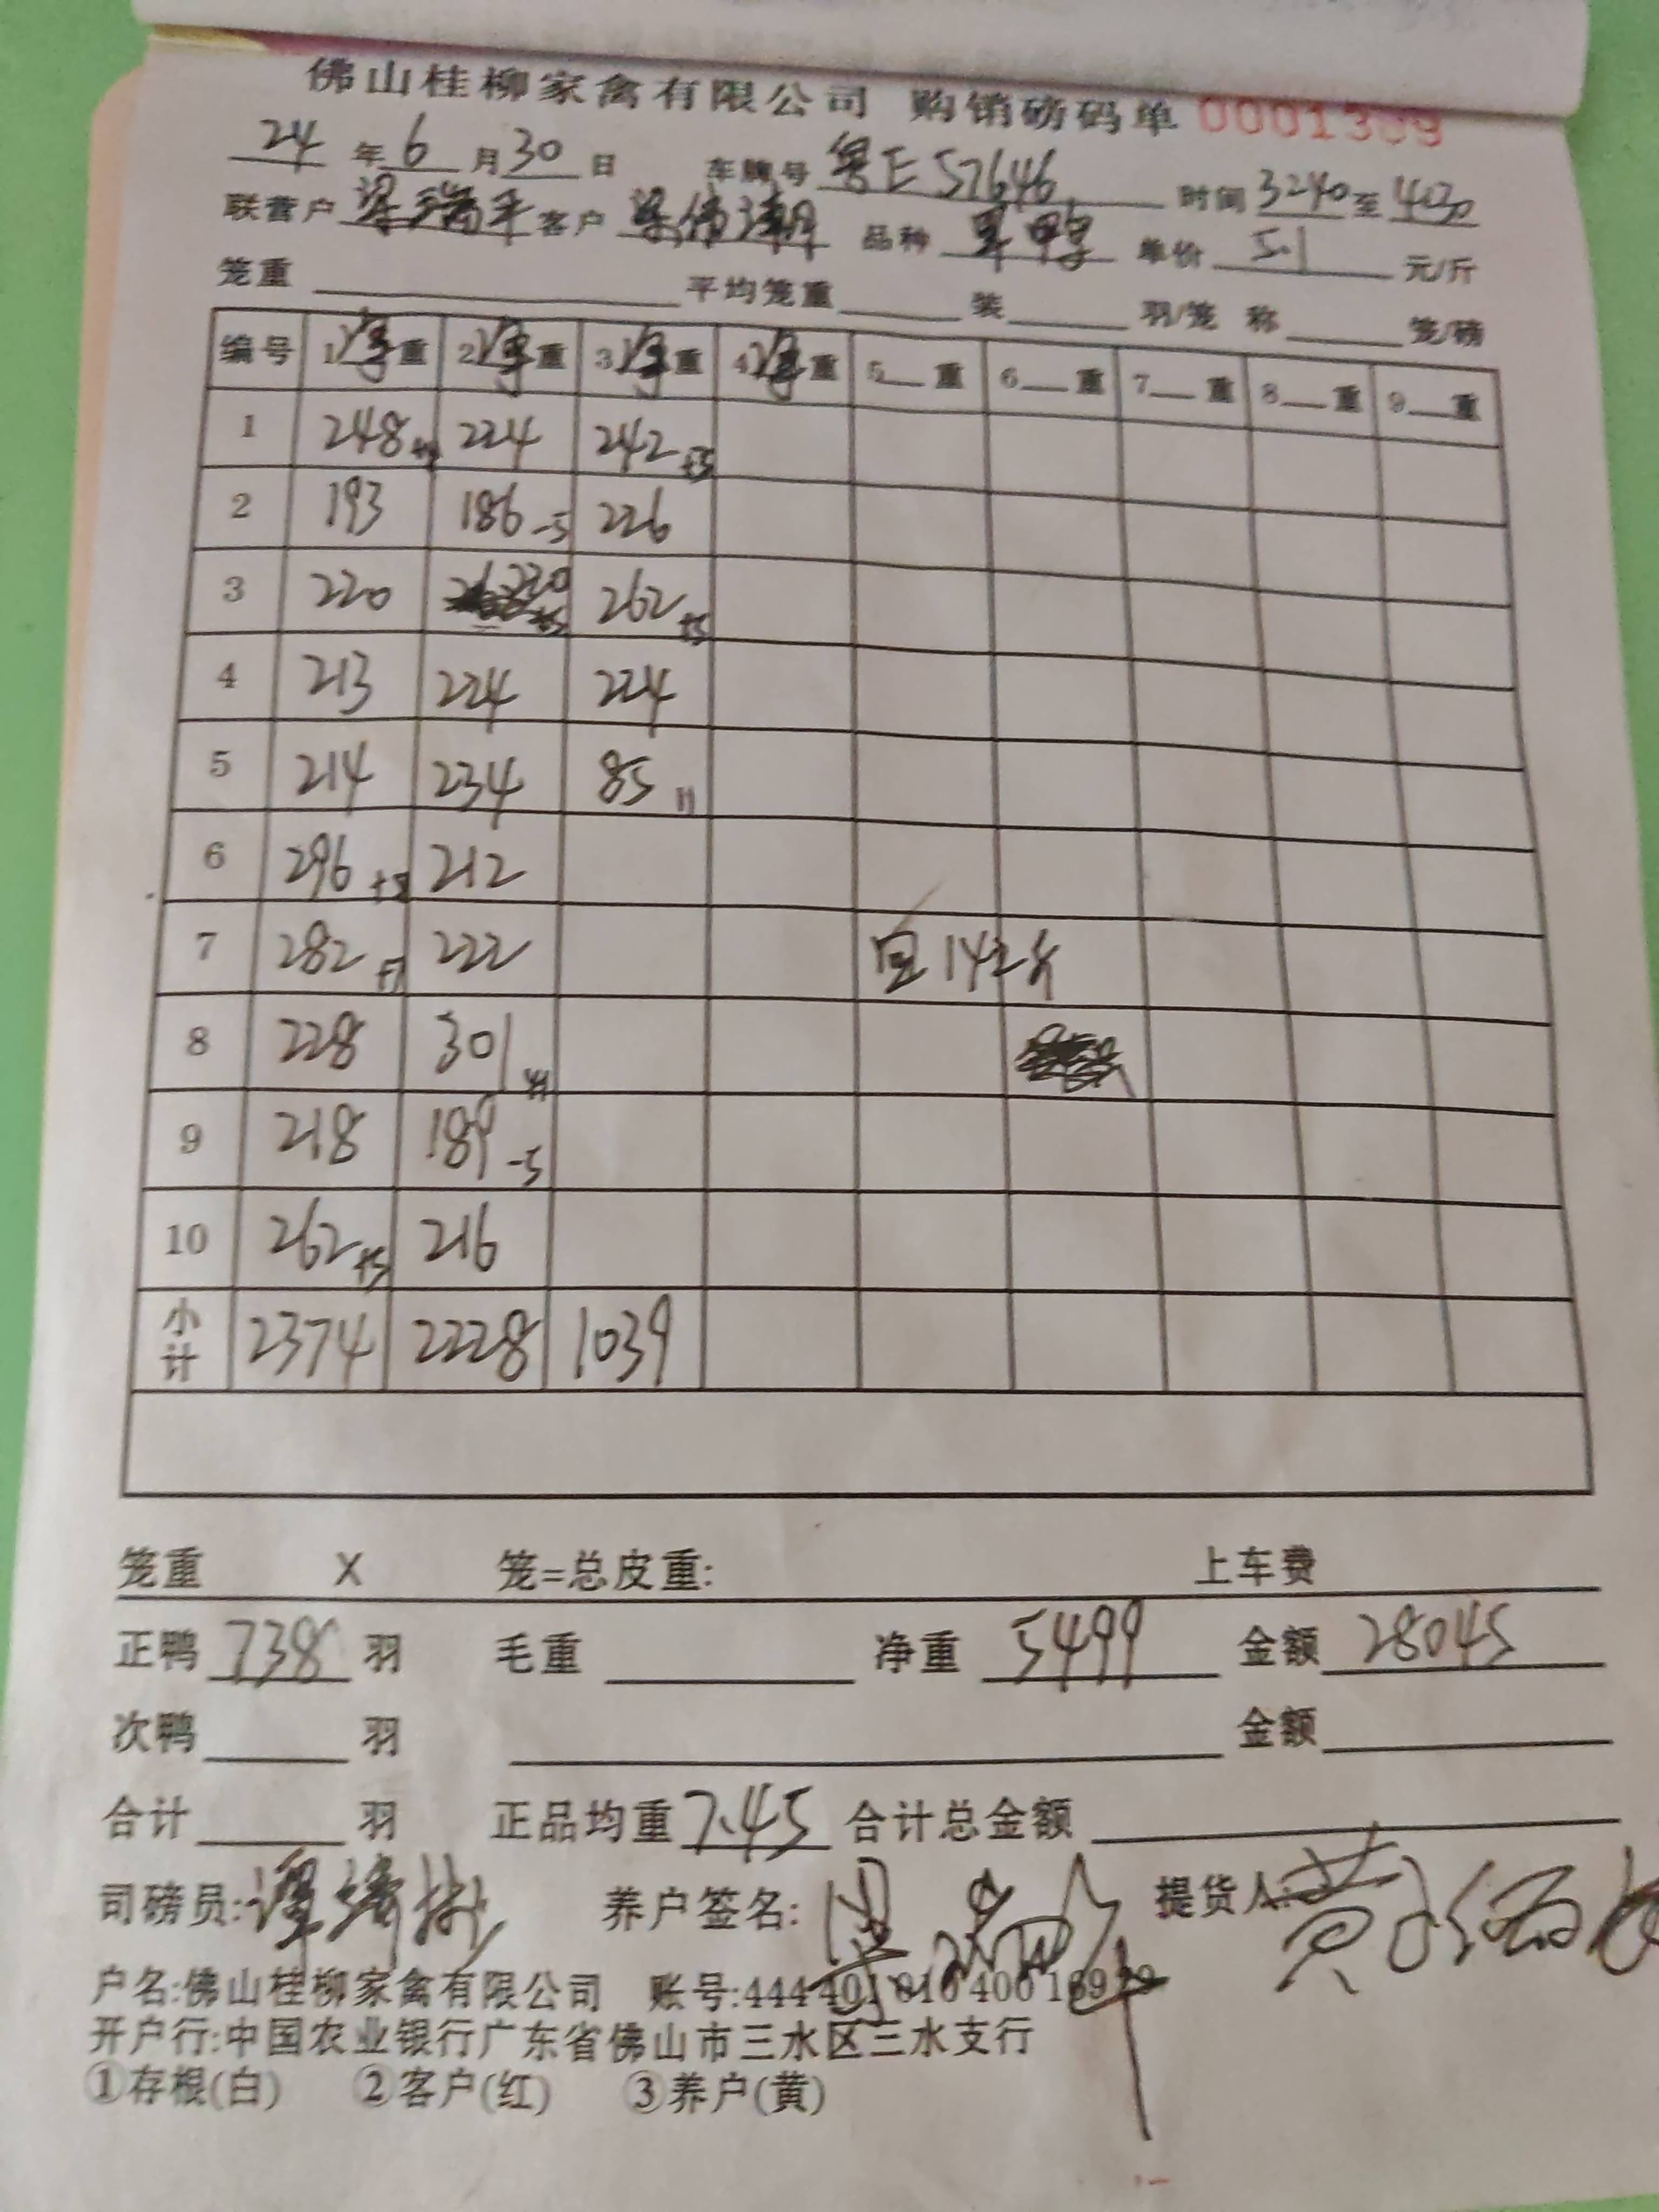 佛山桂柳家禽有限公司 购销磅码单 0001339
24 年 6 月 30 日 车牌号 粤E57646 时间 3240 至 4030
联营户 梁瑞平 客户 梁伟潮 品种 单价 5.1 元/斤
笼重 平均笼重 装 羽/笼 称 笼/磅
编号 1 重 2 重 3 重 4 重 5 重 6 重 7 重 8 重 9 重
1 248 224 242 +5
2 193 186 -5 226
3 220 220 262 +5
4 213 224 224
5 214 234 85 11
6 296 212
7 282 222 142
8 228 301
9 218 189 -5
10 262 +5 216
小计 2374 2228 1039
笼重 X 笼=总皮重: 上车费
正鸭 738 羽 毛重 净重 5499 金额 28045
次鸭 羽 金额
合计 羽 正品均重 7.45 合计总金额
司磅员: 养户签名: 梁瑞平 提货人: 黄
户名:佛山桂柳家禽有限公司 账号:444
开户行:中国农业银行广东省佛山市三水区三水支行
①存根(白) ②客户(红) ③养户(黄)